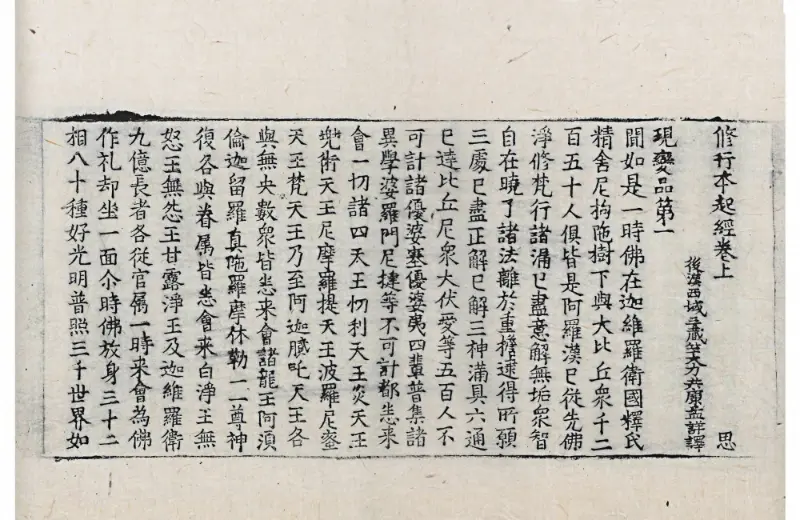 修行本起經卷上 思
後漢西域三藏竺大力共康孟詳譯
現變品第一
聞如是一時佛在迦維羅衛國釋氏
精舍尼拘陁樹下與大比丘衆千二
百五十人俱皆是阿羅漢已從先佛
淨修梵行諸漏已盡意解無垢衆智
自在曉了諸法離於重擔逮得所願
三處已盡正解已解三神滿具六通
已達比丘尼衆大伏愛等五百人不
可計諸優婆塞優婆夷四輩普集諸
異學婆羅門尼揵等不可計都悉来
會一切諸四天王忉利天王炎天王
兠術天王尼摩羅提天王波羅尼蜜
天王梵天王乃至阿迦膩吒天王各
與無央數衆皆悉来會諸龍王阿須
倫迦留羅真陁羅摩休勒一一尊神
復各與眷属皆悉會来白淨王無
怒王無怨王甘露淨王及迦維羅衛
九億長者各從官属一時来會為佛
作礼却坐一面尒時佛放身三十二
相八十種好光明普照三千世界如